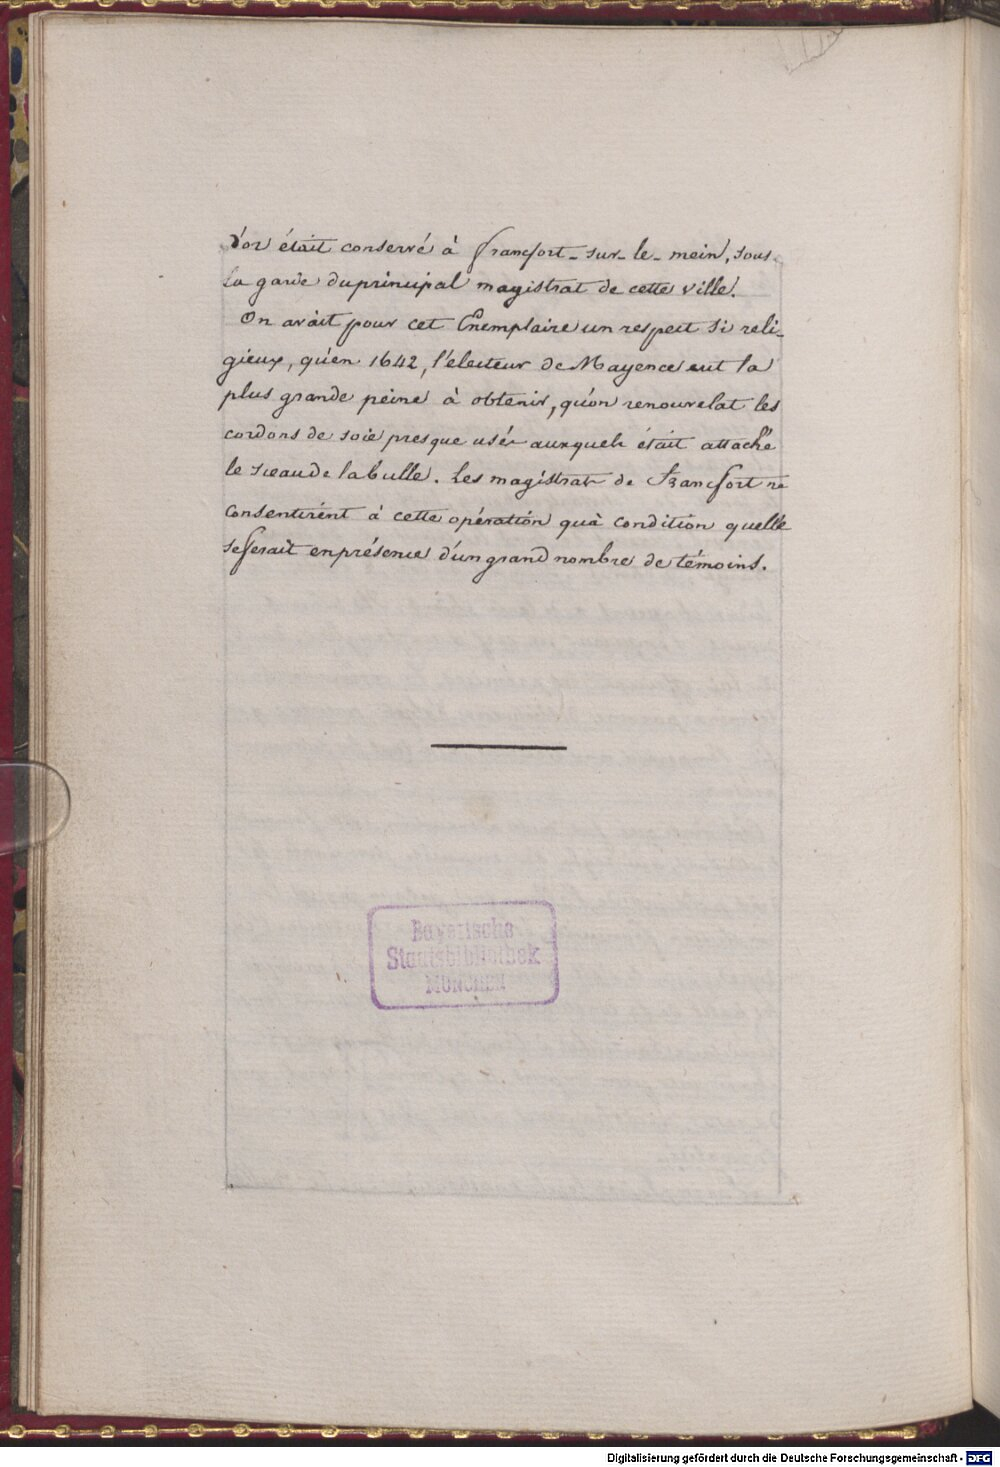 d'or était conservé à francfort-sur-le-mein, sous
la garde du principal magistrat de cette ville.
On avait pour cet Exemplaire un respect si reli-
gieux, qu'en 1642, l'electeur de Mayence eut la
plus grande peine à obtenir, qu'on renouvelat les
cordons de soie presque usés auxquels était attaché
le sceau de la bulle. Les magistrats de Francfort ne
consentirent à cette opération qu'à condition quelle
se ferait en présence d'un grand nombre de témoins.
Bayerische
Staatsbibliothek
MÜNCHEN
Digitalisierung gefördert durch die Deutsche Forschungsgemeinschaft - DFG